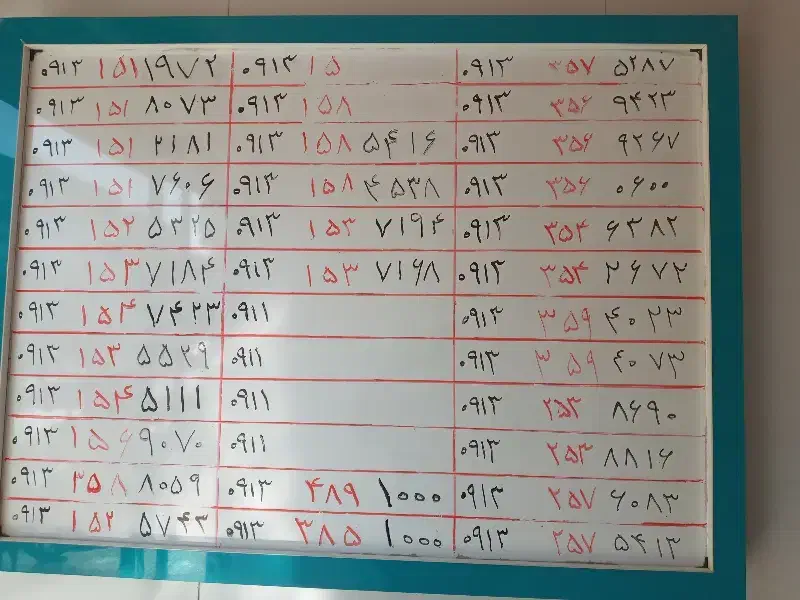 ۰۹۱۳ ۱۵۱ ۱۹۷۲ ۰۹۱۳ ۱۵ ۰۹۱۳ ۳۵۷ ۵۲۸۷
۰۹۱۳ ۱۵۱ ۸۰۷۳ ۰۹۱۳ ۱۵۸ ۰۹۱۳ ۳۵۶ ۹۴۲۳
۰۹۱۳ ۱۵۱ ۲۱۸۱ ۰۹۱۳ ۱۵۸ ۵۴۱۶ ۰۹۱۳ ۳۵۶ ۹۲۶۷
۰۹۱۳ ۱۵۱ ۷۶۰۶ ۰۹۱۳ ۱۵۸ ۴۵۳۸ ۰۹۱۳ ۳۵۶ ۰۶۰۰
۰۹۱۳ ۱۵۲ ۵۳۲۵ ۰۹۱۳ ۱۵۳ ۷۱۹۴ ۰۹۱۳ ۳۵۴ ۶۳۸۲
۰۹۱۳ ۱۵۳ ۷۱۸۴ ۰۹۱۳ ۱۵۳ ۷۱۶۸ ۰۹۱۳ ۳۵۴ ۲۶۷۲
۰۹۱۳ ۱۵۴ ۷۴۲۳ ۰۹۱۱ ۰۹۱۳ ۳۵۹ ۴۰۲۳
۰۹۱۳ ۱۵۳ ۵۵۲۹ ۰۹۱۱ ۰۹۱۳ ۳۵۹ ۴۰۷۳
۰۹۱۳ ۱۵۴ ۵۱۱۱ ۰۹۱۱ ۰۹۱۳ ۲۵۳ ۸۶۹۰
۰۹۱۳ ۱۵۶ ۹۰۷۰ ۰۹۱۱ ۰۹۱۳ ۲۵۳ ۸۸۱۶
۰۹۱۳ ۳۵۸ ۸۰۵۹ ۰۹۱۳ ۴۸۹ ۱۰۰۰ ۰۹۱۳ ۲۵۷ ۶۰۸۳
۰۹۱۳ ۱۵۲ ۵۷۴۳ ۰۹۱۳ ۳۸۵ ۱۰۰۰ ۰۹۱۳ ۲۵۷ ۵۴۱۳